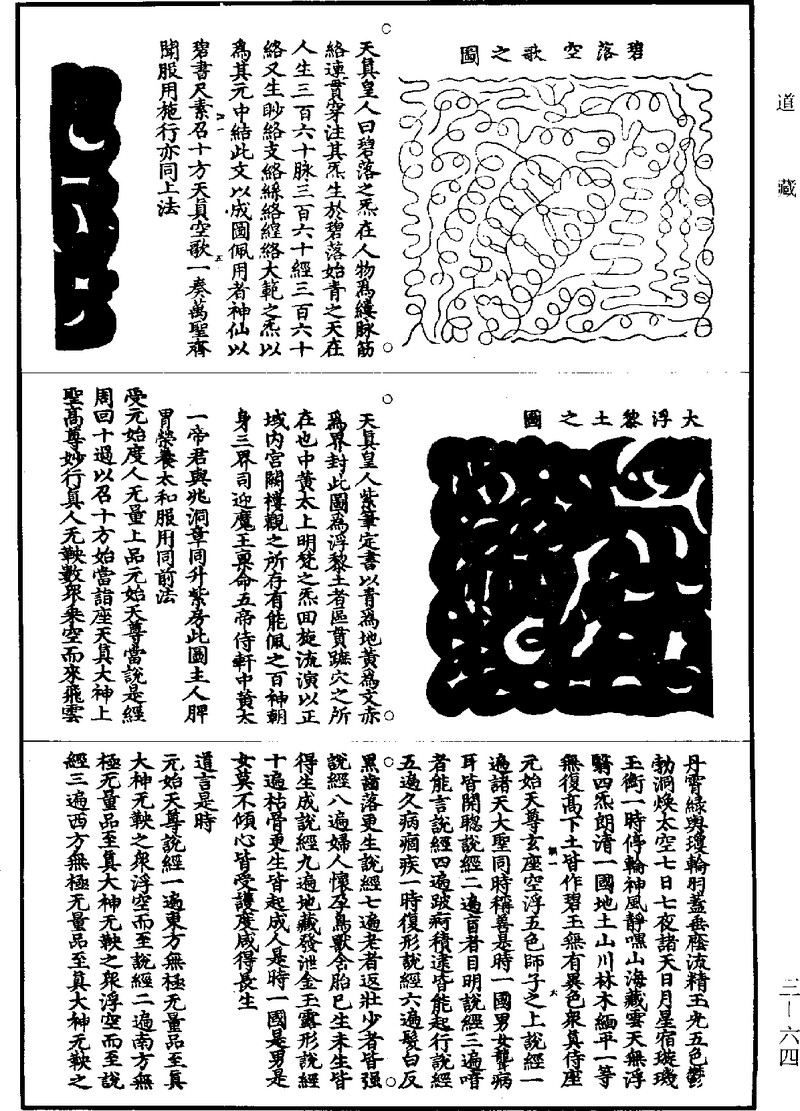 道藏
碧落空歌之圖
天真皇人曰碧落之炁在人物爲縷脉筋
絡連貫穿注其炁生於碧落始青之天在
人生三百六十脉三百六十經三百六十
絡又生眇絡支絡絲絡經絡大範之炁以
爲其元中結此文以成圖佩用者神仙以
碧書尺素召十方天真空歌一奏萬聖齊
聞服用施行亦同上法
大浮黎土之圖
天真皇人紫筆定書以青爲地黃爲文亦
爲界封此圖爲浮黎土者區貫蹠穴之所
在也中黃太上明梵之炁回旋流演以正
域内宫闕樓觀之所存有能佩之百神朝
身三界司迎魔王稟命五帝侍軒中黃太
一帝君與兆洞章同升紫房此圖主人脾
胃榮養太和服用同前法
受元始度人无量上品元始天尊當說是經
周回十過以召十方始當詣座天真大神上
聖高尊妙行真人无鞅數衆乘空而來飛雲
丹霄緑輿瓊輪羽蓋垂廕流精玉光五色鬱
勃洞焕太空七日七夜諸天日月星宿璇璣
玉衡一時停輪神風靜嘿山海藏雲天無浮
翳四炁朗清一國地土山川林木緬平一等
無復高下土皆作碧玉無有異色衆真侍座
元始天尊玄座空浮五色師子之上說經一
遍諸天大聖同時稱善是時一國男女聾病
耳皆開聰說經二遍盲者目明說經三遍喑
者能言說經四遍跛痾積逮皆能起行說經
五遍久病痼疾一時復形說經六遍髮白反
黑齒落更生說經七遍老者返壯少者皆强
說經八遍婦人懷孕鳥獸含胎已生未生皆
得生成說經九遍地藏發泄金玉露形說經
十遍枯骨更生皆起成人是時一國是男是
女莫不傾心皆受護度咸得長生
道言是時
元始天尊說經一遍東方無極无量品至真
大神无鞅之衆浮空而至說經二遍南方無
極无量品至真大神无鞅之衆浮空而至說
經三遍西方無極无量品至真大神无鞅之
三—六四